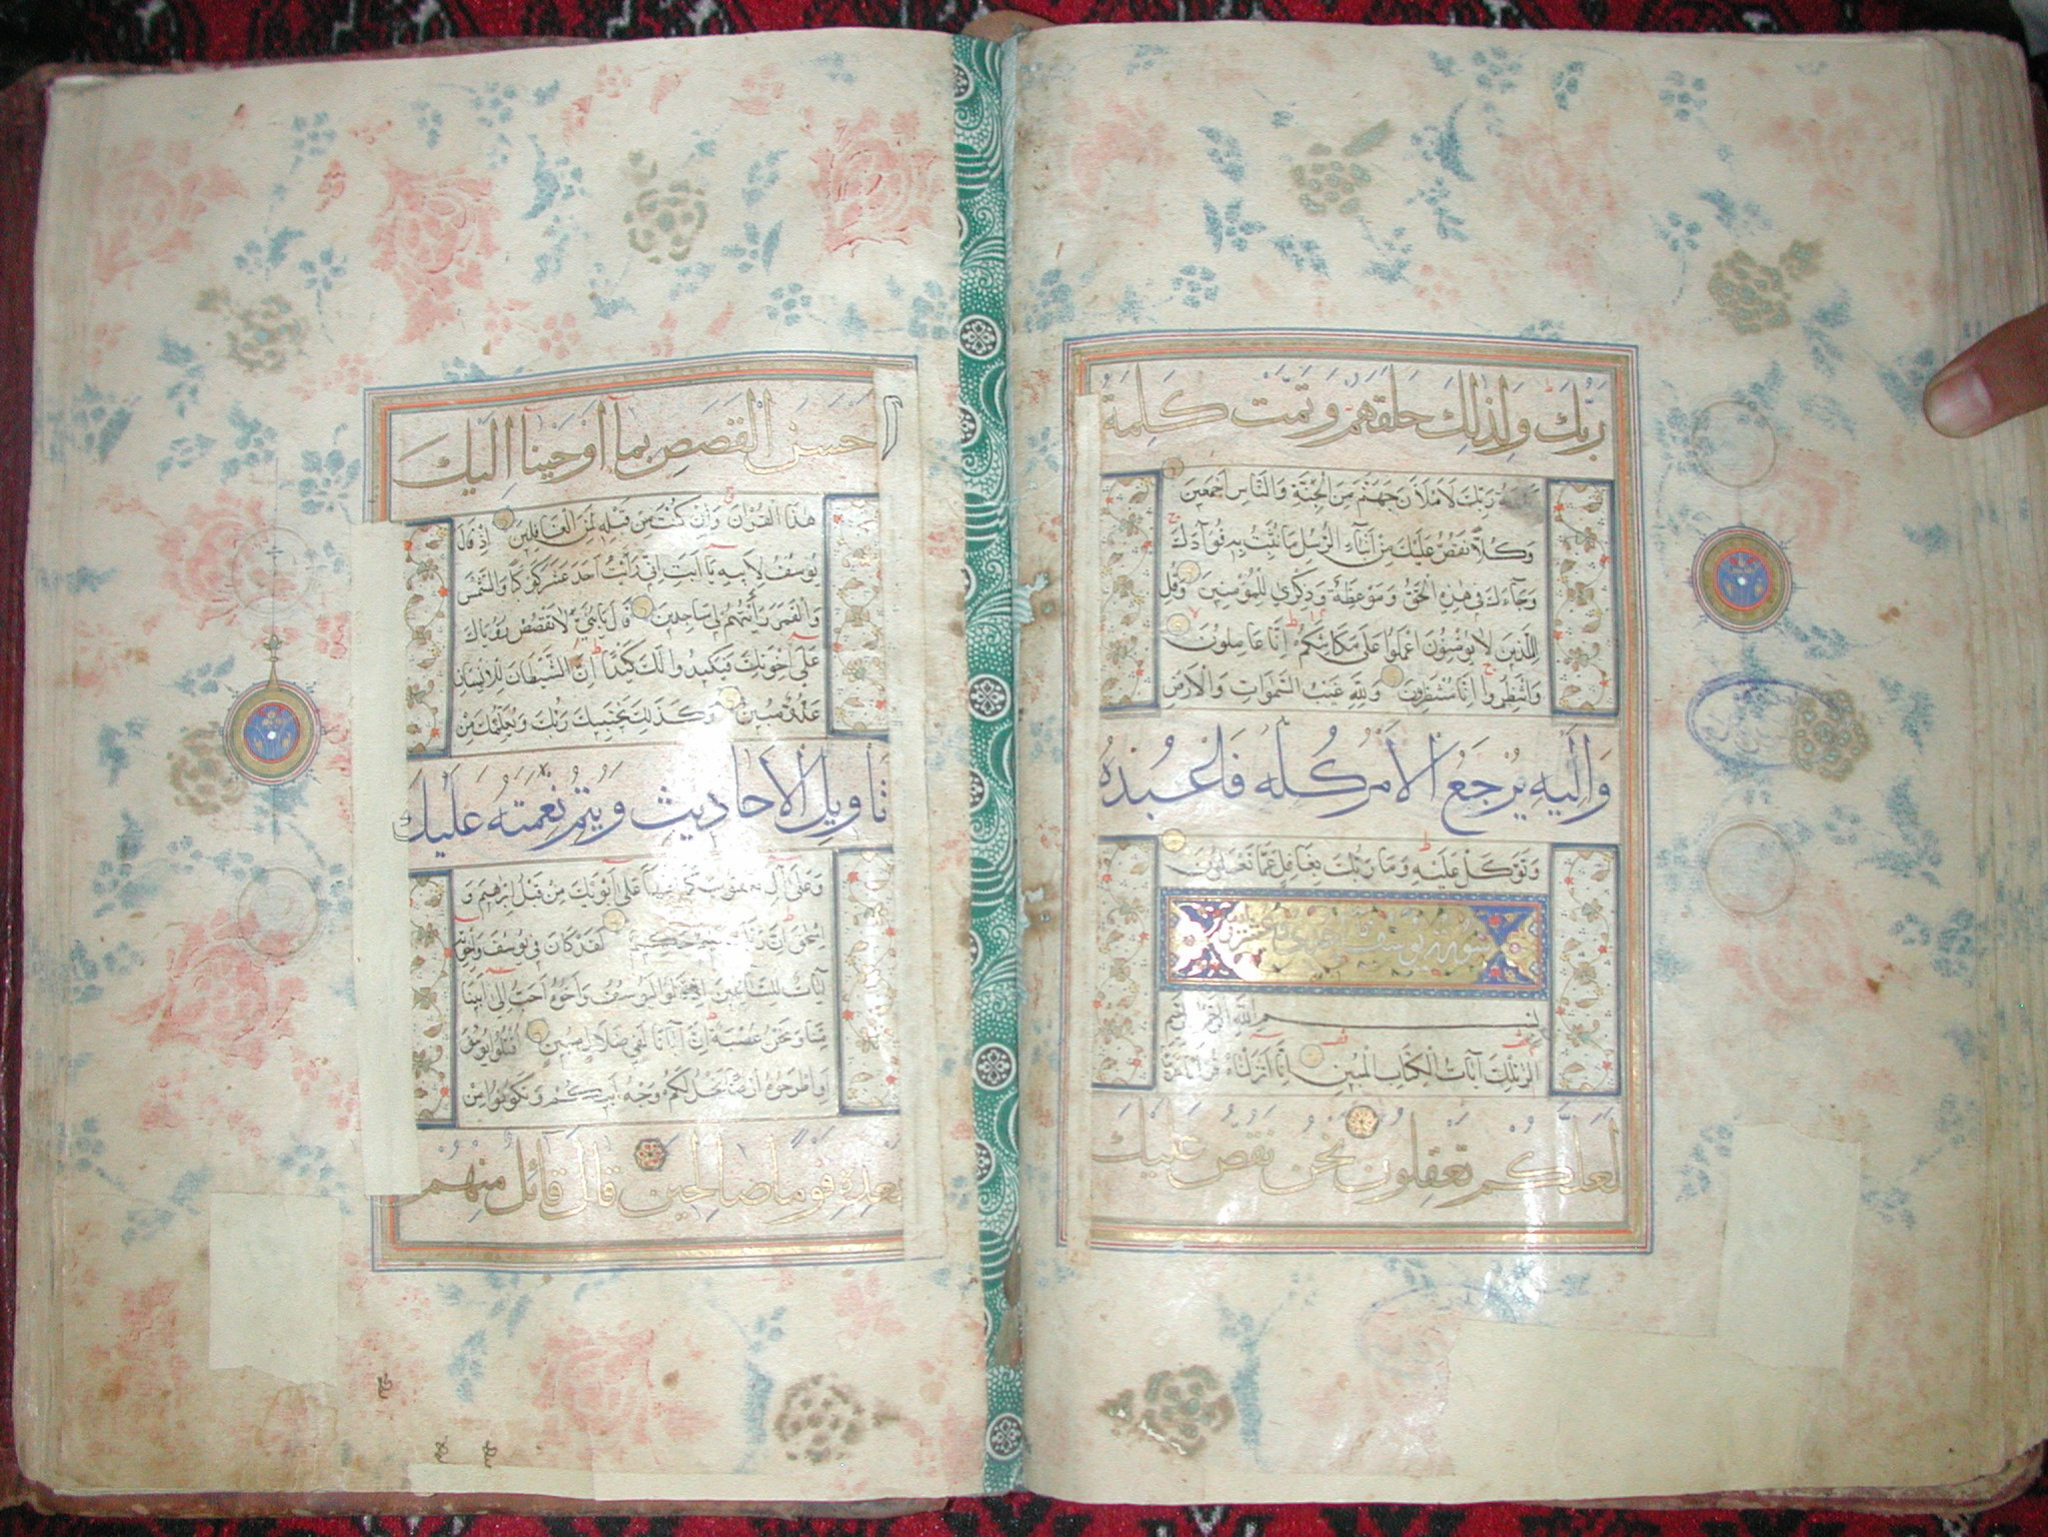 رَبُّكَ وَلِذٰلِكَ خَلَقَهُمْ وَتَمَّتْ كَلِمَةُ
رَبِّكَ لَاَمْلَاَنَّ جَهَنَّمَ مِنَ الْجِنَّةِ وَالنَّاسِ اَجْمَعِينَ
وَكُلًّا نَقُصُّ عَلَيْكَ مِنْ اَنْبَآءِ الرُّسُلِ مَا نُثَبِّتُ بِهِ فُوآدَكَ
وَجَآءَكَ فِي هٰذِهِ الْحَقُّ وَمَوْعِظَةٌ وَذِكْرٰي لِلْمُؤْمِنِينَ وَقُلْ
لِلَّذِينَ لَا يُؤْمِنُونَ اعْمَلُوا عَلٰي مَكَانَتِكُمْ اِنَّا عَامِلُونَ
وَانْتَظِرُوا اِنَّا مُنْتَظِرُونَ وَلِلّٰهِ غَيْبُ السَّمٰوَاتِ وَالْاَرْضِ
وَاِلَيْهِ يُرْجَعُ الْاَمْرُ كُلُّهُ فَاعْبُدْهُ
وَتَوَكَّلْ عَلَيْهِ وَمَا رَبُّكَ بِغَافِلٍ عَمَّا تَعْمَلُونَ
سورة يوسف
بِسْمِ اللّٰهِ الرَّحْمٰنِ الرَّحِيمِ
الٓرٰ تِلْكَ آيَاتُ الْكِتَابِ الْمُبِينِ اِنَّا اَنْزَلْنَاهُ قُرْآنًا
لَعَلَّكُمْ تَعْقِلُونَ نَحْنُ نَقُصُّ عَلَيْكَ
اَحْسَنَ الْقَصَصِ بِمَآ اَوْحَيْنَآ اِلَيْكَ
هٰذَا الْقُرْاٰنَ وَاِنْ كُنْتَ مِنْ قَبْلِهِ لَمِنَ الْغَافِلِينَ اِذْ قَالَ
يُوسُفُ لِاَبِيهِ يَآ اَبَتِ اِنِّي رَاَيْتُ اَحَدَ عَشَرَ كَوْكَبًا وَالشَّمْسَ
وَالْقَمَرَ رَاَيْتُهُمْ لِي سَاجِدِينَ قَالَ يَا بُنَيَّ لَا تَقْصُصْ رُءْيَاكَ
عَلٰٓي اِخْوَتِكَ فَيَكِيدُوا لَكَ كَيْدًا اِنَّ الشَّيْطَانَ لِلْاِنْسَانِ
عَدُوٌّ مُبِينٌ وَكَذٰلِكَ يَجْتَبِيكَ رَبُّكَ وَيُعَلِّمُكَ مِنْ
تَاْوِيلِ الْاَحَادِيثِ وَيُتِمُّ نِعْمَتَهُ عَلَيْكَ
وَعَلٰٓي آلِ يَعْقُوبَ كَمَآ اَتَمَّهَا عَلٰٓي اَبَوَيْكَ مِنْ قَبْلُ اِبْرٰهِيمَ وَ
اِسْحٰقَ اِنَّ رَبَّكَ عَلِيمٌ حَكِيمٌ لَقَدْ كَانَ فِي يُوسُفَ وَاِخْوَتِهِ
آيَاتٌ لِلسَّآئِلِينَ اِذْ قَالُوا لَيُوسُفُ وَاَخُوهُ اَحَبُّ اِلٰٓي اَبِينَا
مِنَّا وَنَحْنُ عُصْبَةٌ اِنَّ اَبَانَا لَفِي ضَلَالٍ مُبِينٍ اقْتُلُوا يُوسُفَ
اَوِ اطْرَحُوهُ اَرْضًا يَخْلُ لَكُمْ وَجْهُ اَبِيكُمْ وَتَكُونُوا مِنْ
بَعْدِهِ قَوْمًا صَالِحِينَ قَالَ قَآئِلٌ مِنْهُمْ